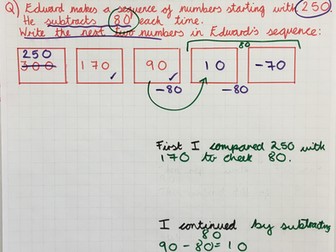 Q) Edward makes a sequence of numbers starting with 250.
He subtracts 80 each time.
Write the next two numbers in Edward's sequence:
80
250
300 170 90 10 -70
-80 -80
First I compared 250 with
170 to check 80.
I continued by subtracting
80
90 - 80 = 10